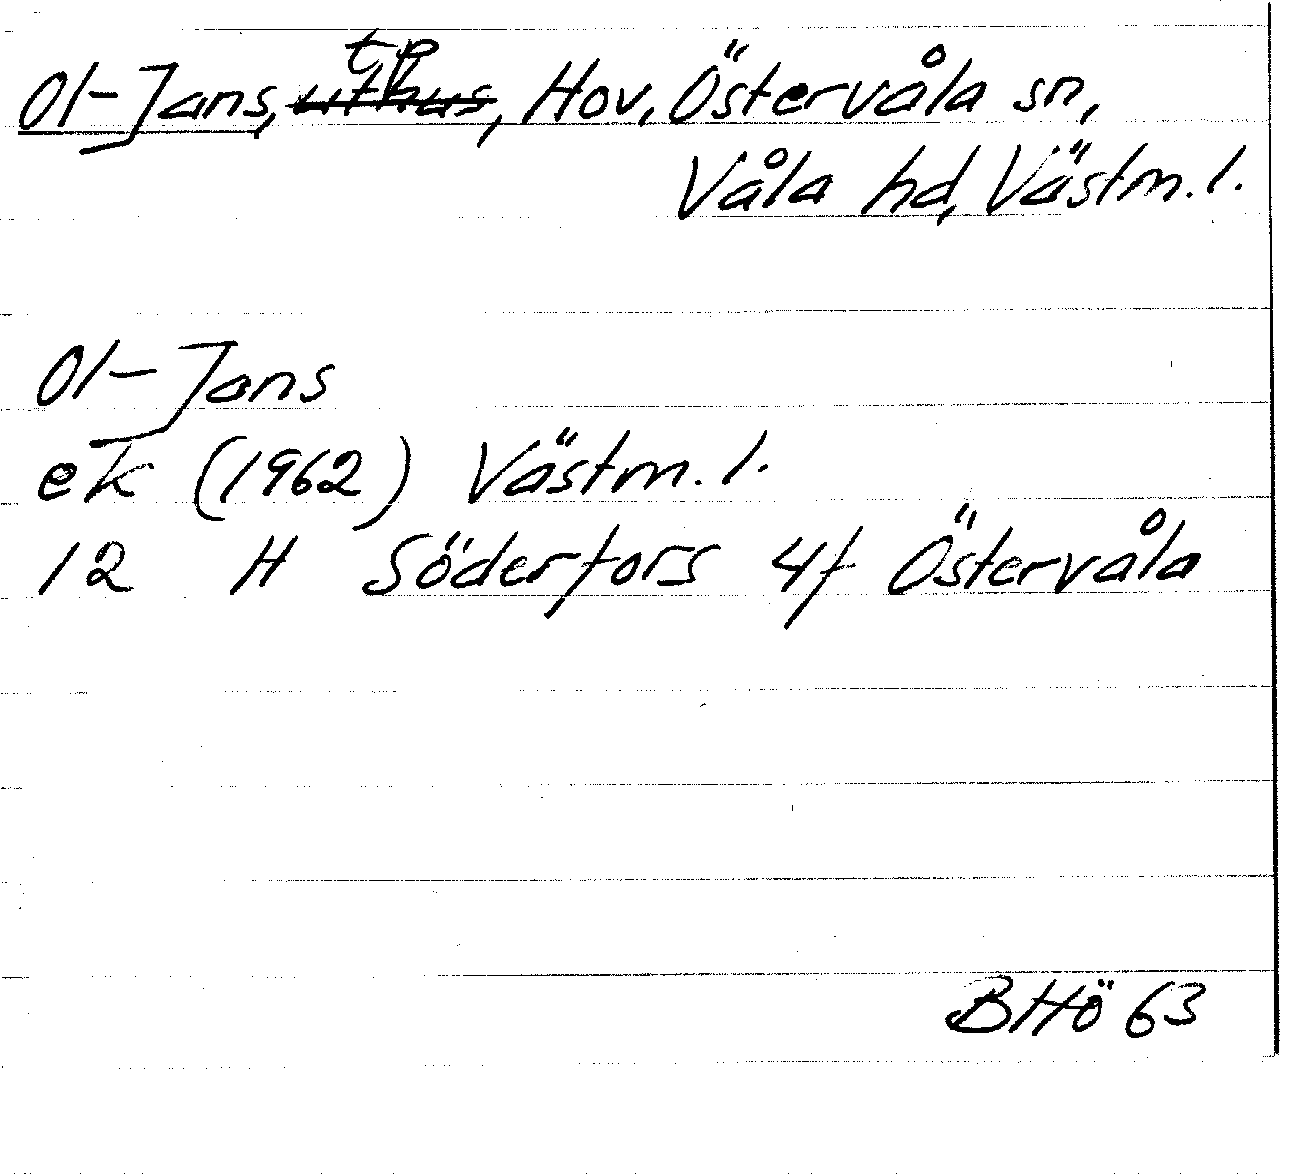 Ol-Jans, tp, Hov, Östervåla sn,
Våla hd, Västm. l.
Ol-Jans
ek (1962) Västm. l.
12 H Söderfors 4f Östervåla
BHö 63